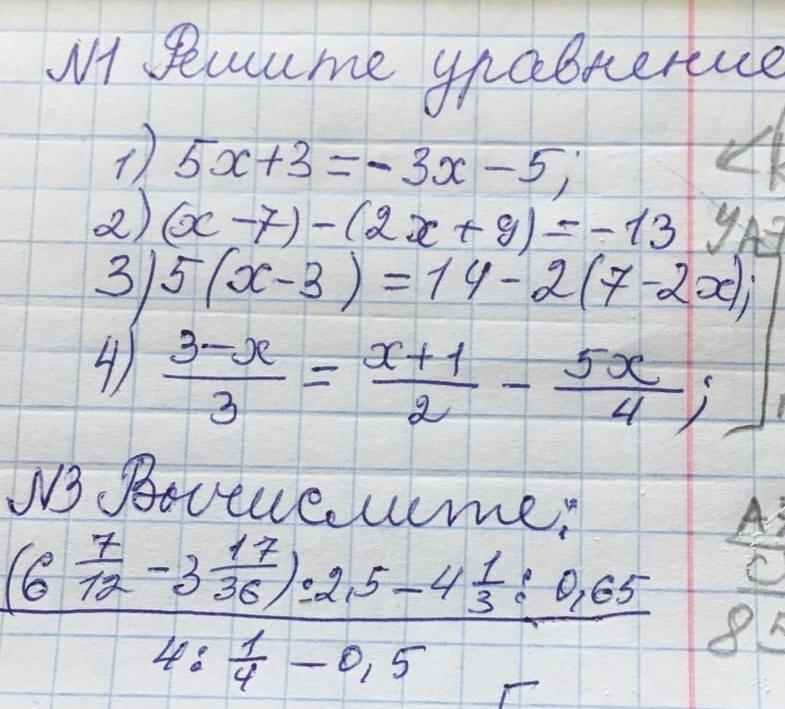 №1 Решите уравнение
1) 5x+3=-3x-5;
2) (x-7)-(2x+9)=-13
3) 5(x-3)=14-2(7-2x);
4) \frac{3-x}{3} = \frac{x+1}{2} - \frac{5x}{4};
№3 Вычислите:
\frac{(6\frac{7}{12}-3\frac{17}{36}):2,5-4\frac{1}{3}:0,65}{4:\frac{1}{4}-0,5}